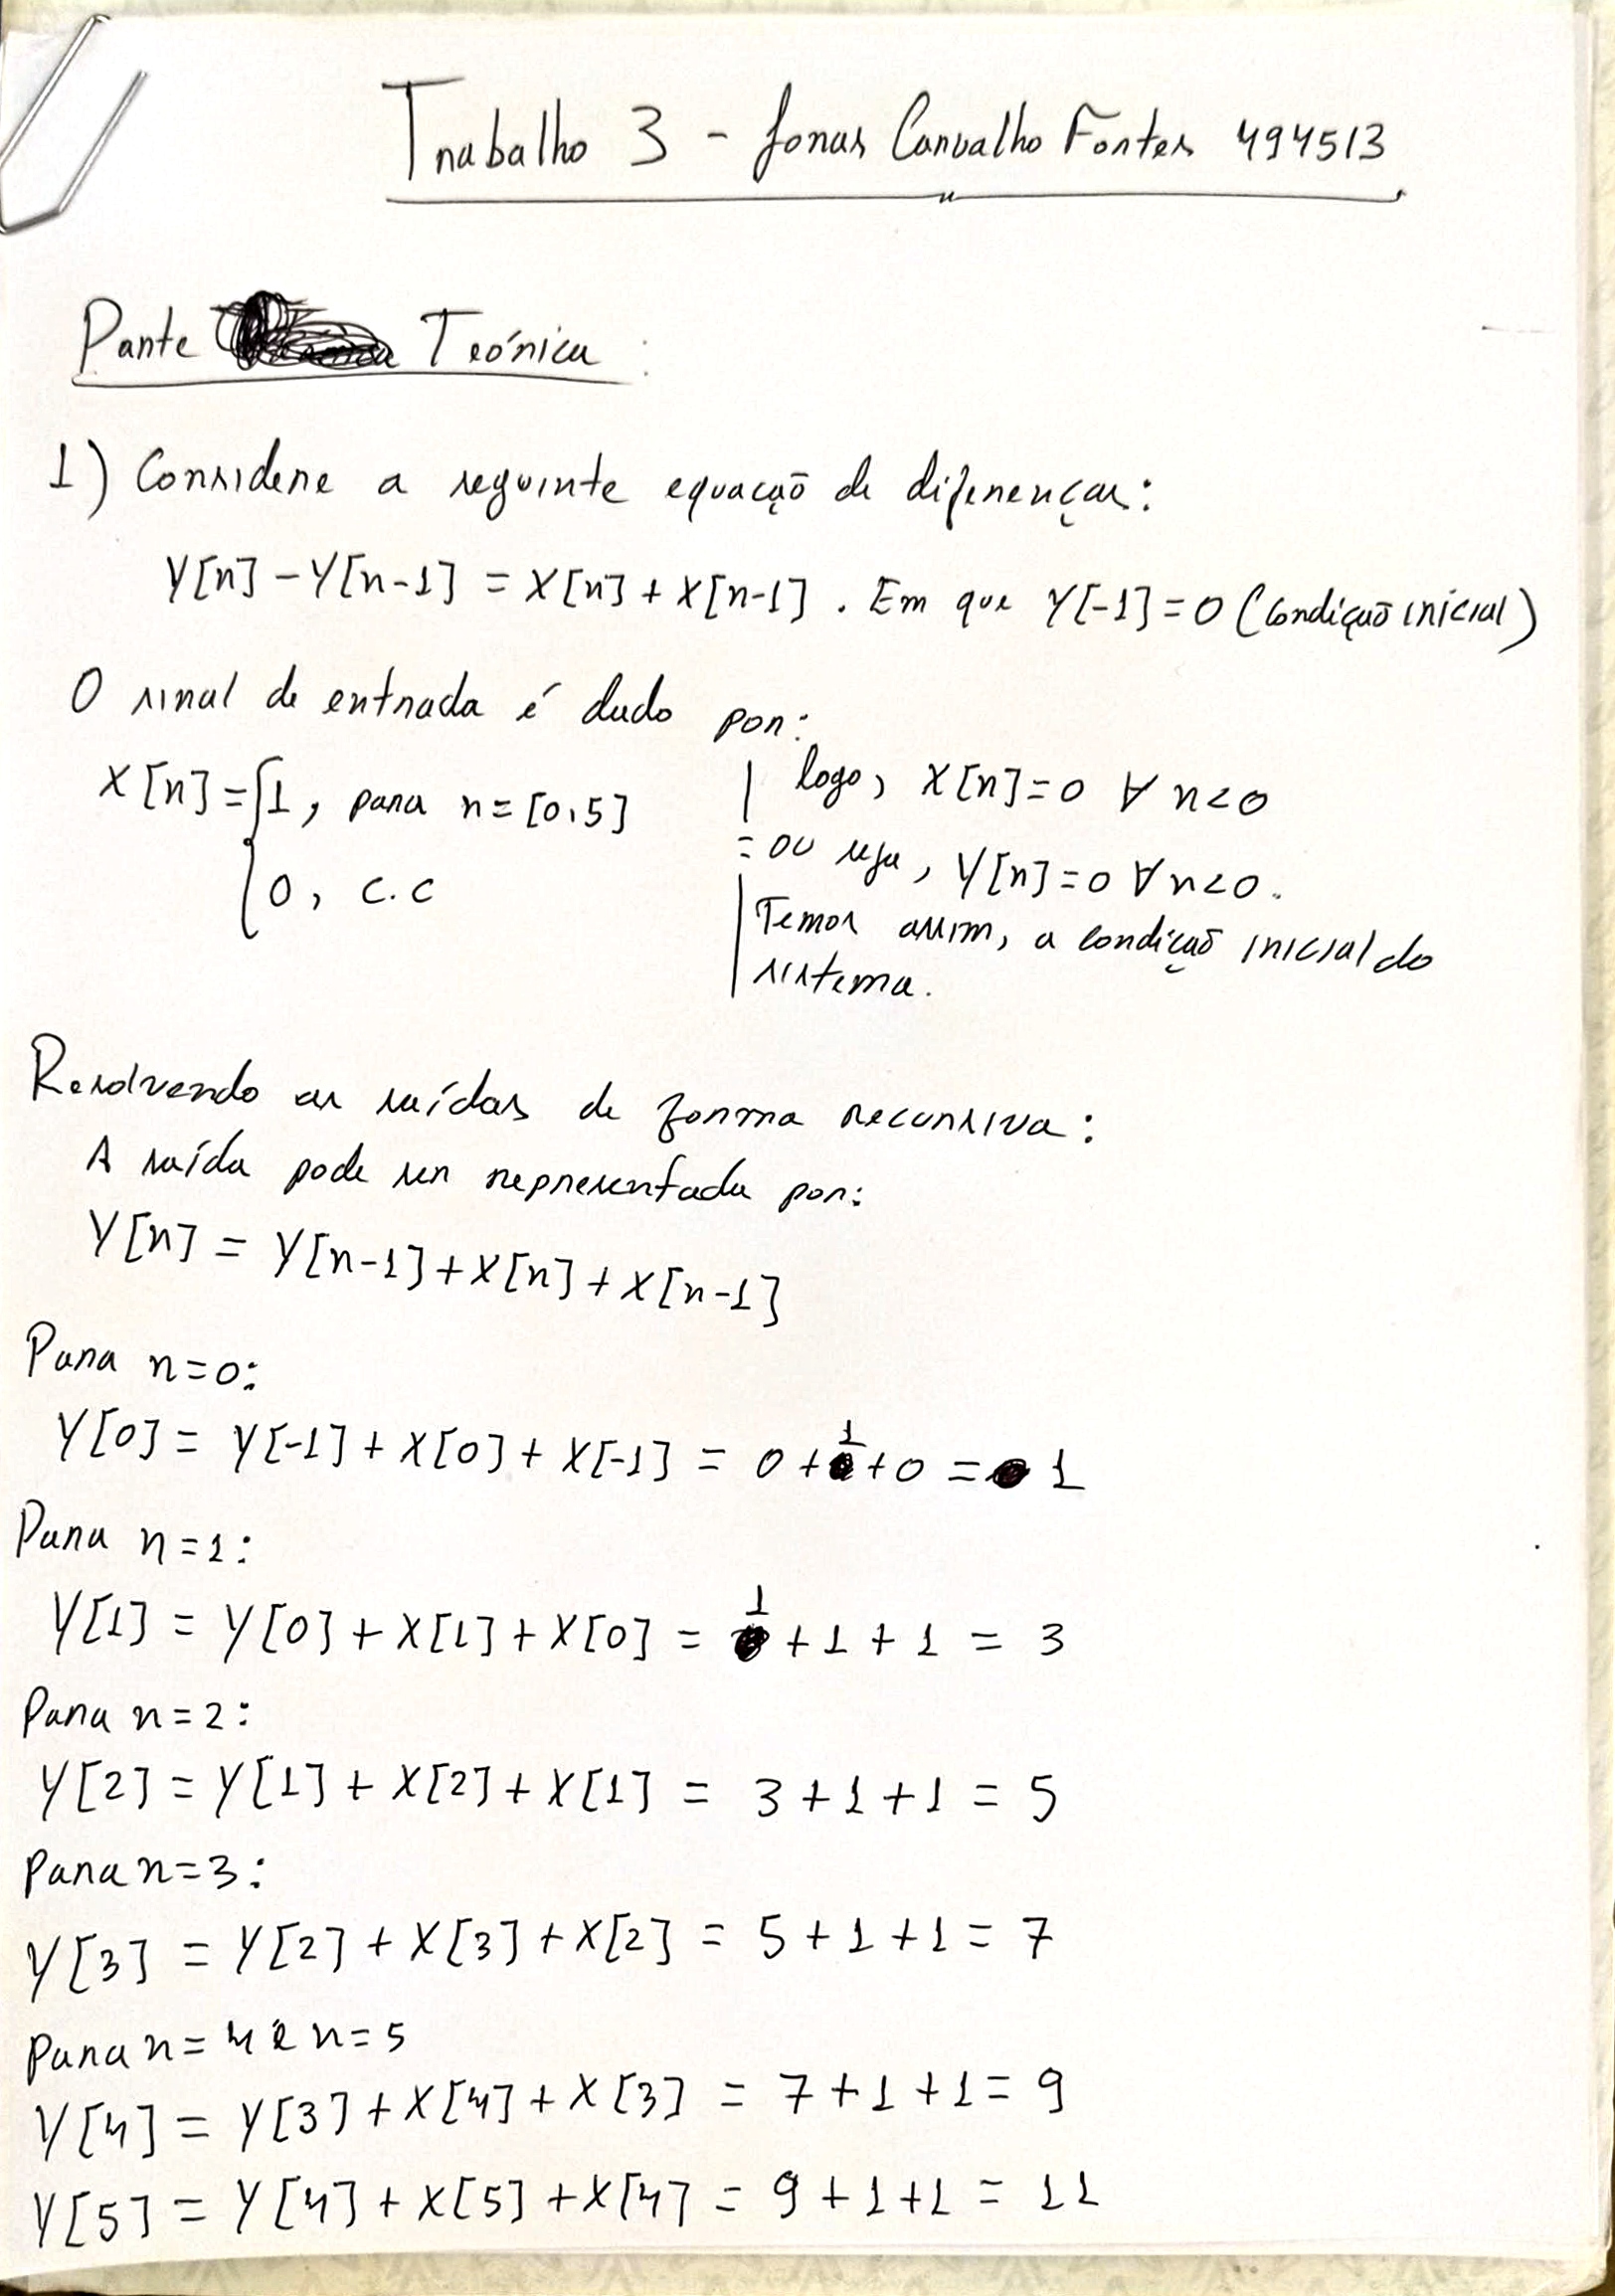 Trabalho 3 - Jonas Carvalho Fontes 494513
Parte Teórica:
1) Considere a seguinte equação de diferenças:
Y[n] - Y[n-1] = X[n] + X[n-1]. Em que Y[-1]=0 (Condição inicial)
O sinal de entrada é dado por:
X[n] = {1, para n=[0,5]
0, c.c
logo, X[n]=0 ∀ n<0
= ou seja, Y[n]=0 ∀ n<0.
Temos assim, a condição inicial do
sistema.
Resolvendo as saídas de forma recursiva:
A saída pode ser representada por:
Y[n] = Y[n-1]+X[n]+X[n-1]
Para n=0:
Y[0] = Y[-1] + X[0] + X[-1] = 0 + 1 + 0 = 1
Para n=1:
Y[1] = Y[0] + X[1] + X[0] = 1 + 1 + 1 = 3
Para n=2:
Y[2] = Y[1] + X[2] + X[1] = 3+1+1 = 5
Para n=3:
Y[3] = Y[2] + X[3] + X[2] = 5+1+1 = 7
Para n=4 e n=5
Y[4] = Y[3] + X[4] + X[3] = 7+1+1 = 9
Y[5] = Y[4] + X[5] + X[4] = 9+1+1 = 11